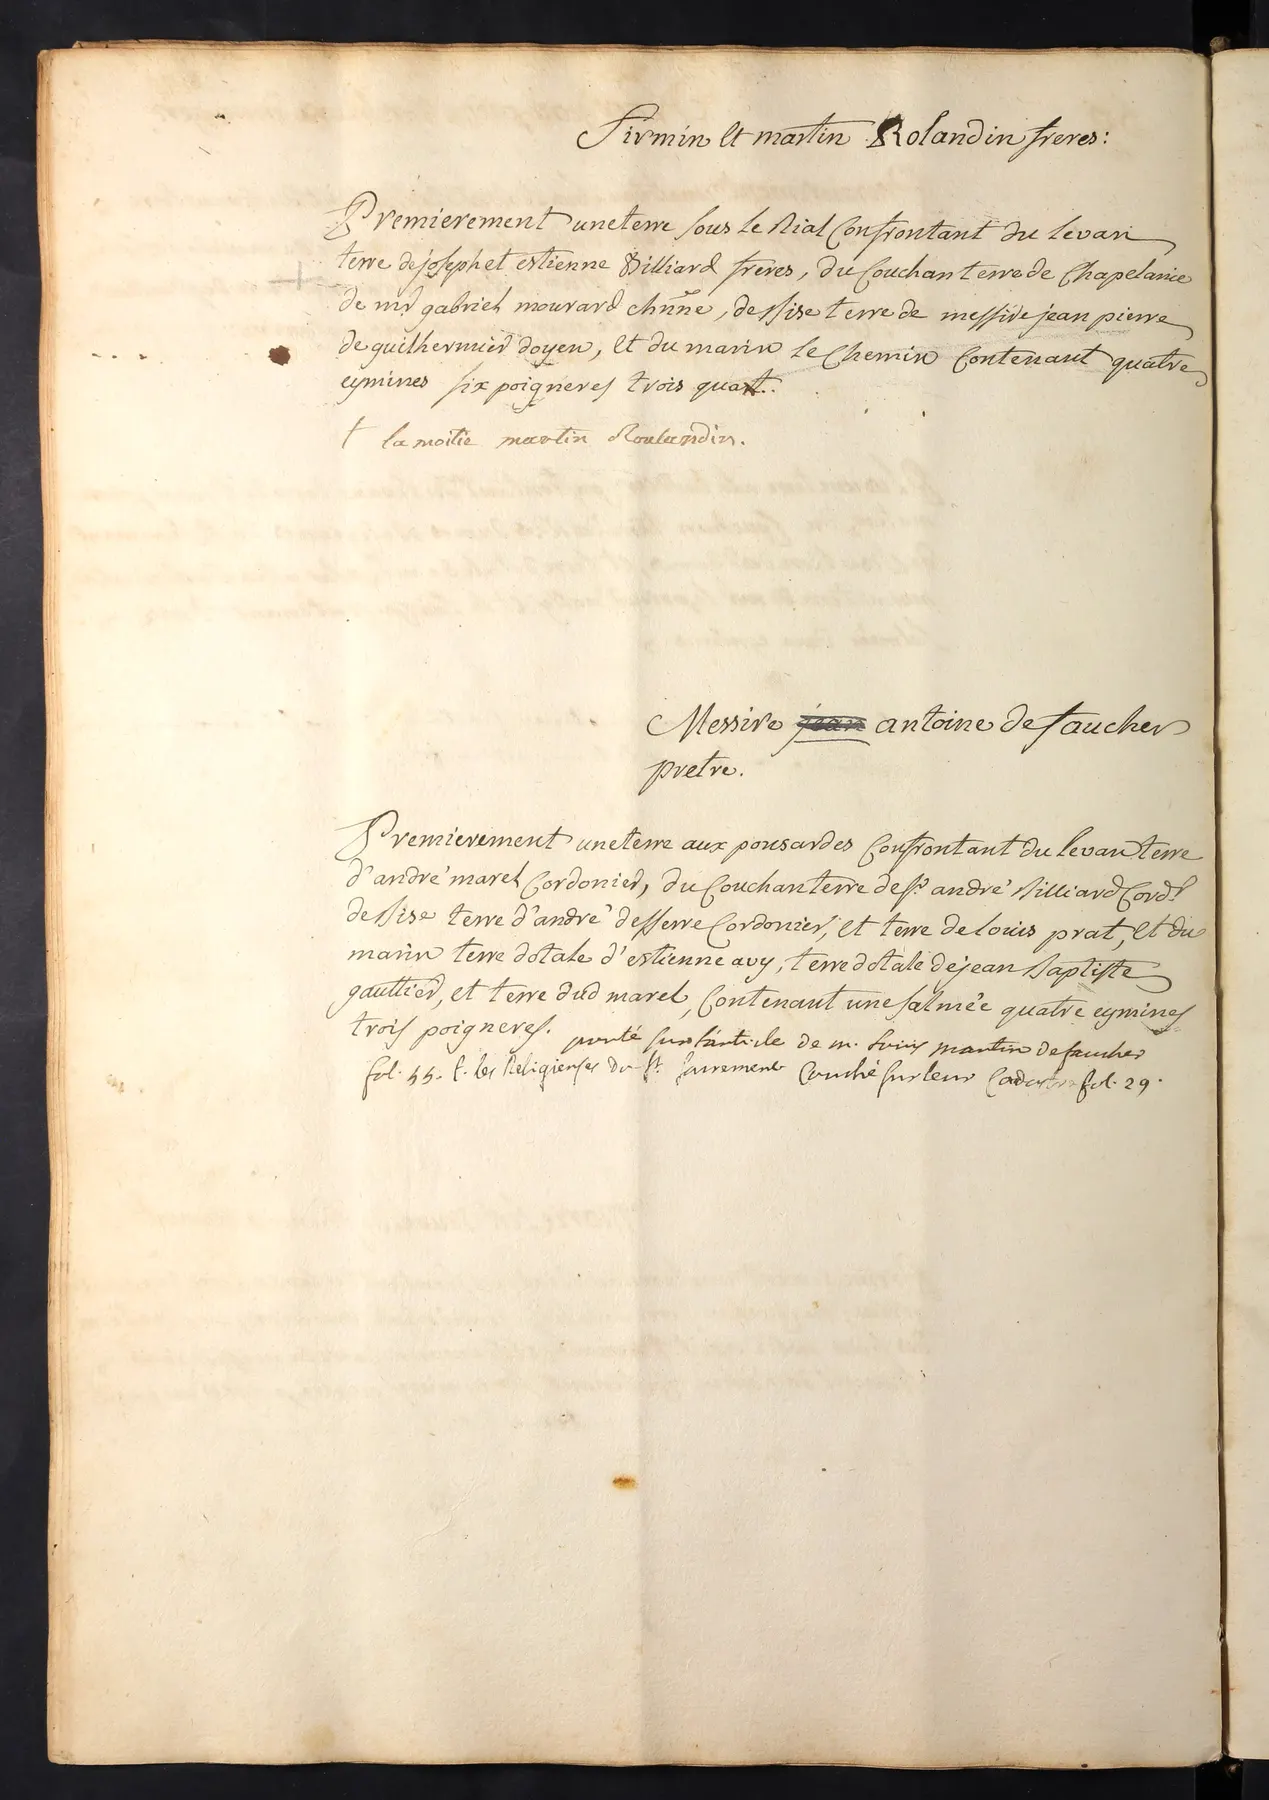 Firmin Et martin Rolandin freres:
Premierement une terre sous le Rial Confrontant du levan
terre de joseph et estienne Billiard freres, du Couchan terre de Chapelanie
de mr gabriel mourard chnne, de Bise terre de messire jean pierre
de guilhermier doyen, Et du marin le chemin Contenant quatre
eymines six poigneres trois quart.
† la moitie martin Roulandin.
Messire jean antoine de faucher
pretre.
Premierement une terre aux ponsardes Confrontant du levan terre
d'andré maret Cordonier, du Couchan terre de Sr andré Billiard Cordr
de Bise terre d'andré desserre Cordonier, Et terre de louis prat, Et du
marin terre dotale d'estienne avy, terre dotale de jean Baptiste
gauttier, et terre dud maret, Contenant une salmée quatre eymines
trois poigneres. porté sur l'article de m. louis martin de faucher
fol. 55. les Religieuses du St. Sacrement Couché sur leur Cadastre fol. 29.